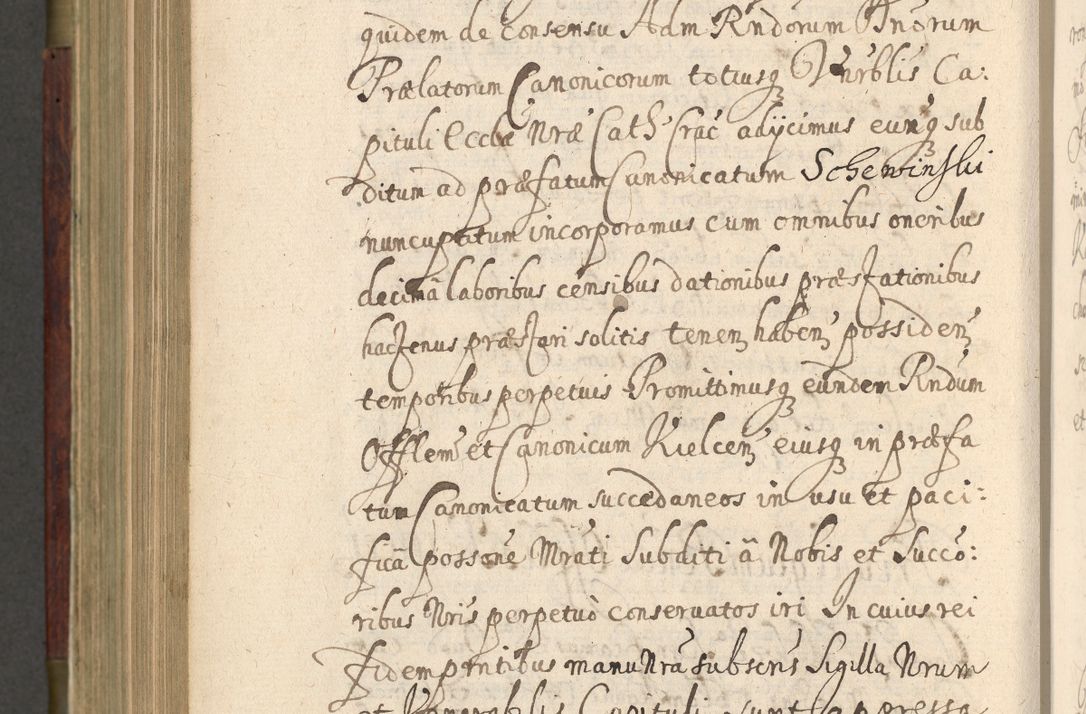 quidem de Consensu Adm Rndorum Dnorum
Prælatorum Canonicorum totiusq Vnrblis Ca:
pituli Eccłæ Nræ Cath Crac adijcimus eumq sub
ditum ad præfatum Canonicatum Schewinski
nuncupatum incorporamus cum omnibus oneribus
decimā laboribus censibus dationibus præstationibus
hactenus præstari solitis tenen habens possidens
temporibus perpetuis Promittimusq eundem Rndum
Offlem et Canonicum Kielcen eiusq in præfa
tum Canonicatum succedaneos in usu et paci:
ficā possone Mrati Subditi ā Nobis et Succo:
ribus Nris perpetuò conseruatos iri In cuius rei
fidem pntibus manu Nrā subscris Sigilla Nrum
et Venerabilis Capituli sunt appressa